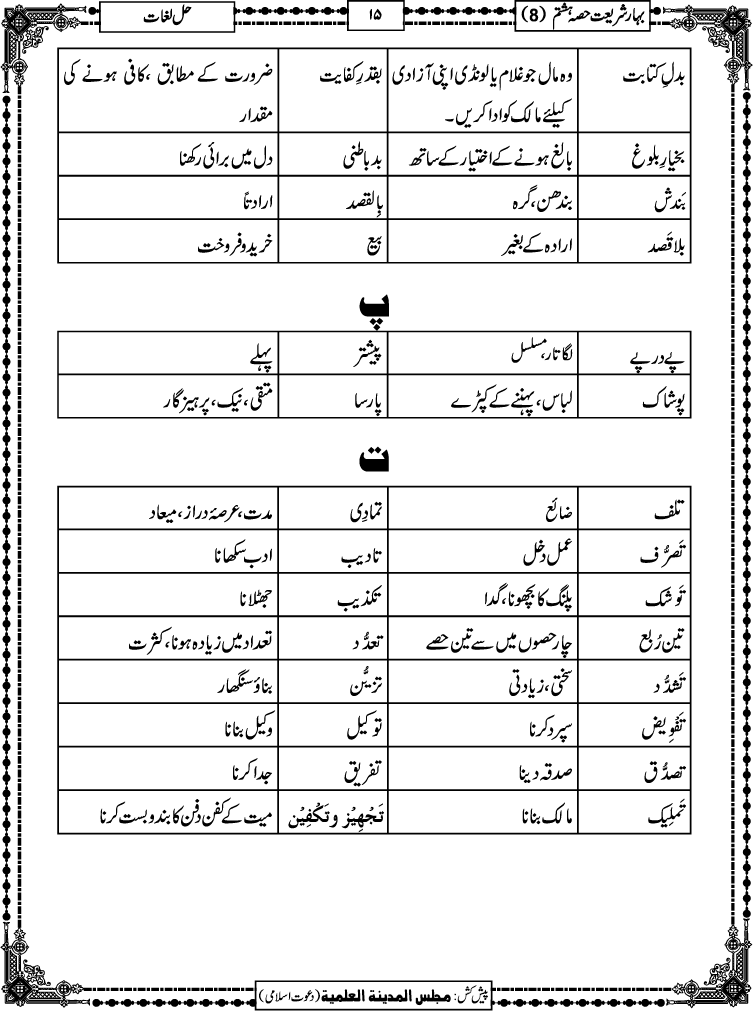 بہار شریعت حصہ ہشتم (8)
۱۵
حل لغات
بدلِ کتابت	وہ مال جو غلام یا لونڈی اپنی آزادی	بقدرِ کفایت	ضرورت کے مطابق ،کافی ہونے کی
کیلئے مالک کو ادا کریں۔	مقدار
بخیارِ بلوغ	بالغ ہونے کے اختیار کے ساتھ	بد باطنی	دل میں برائی رکھنا
بَندش	بندھن،گرہ	بِالقصد	ارادتاً
بلا قَصد	ارادہ کے بغیر	بیع	خرید و فروخت
پ
پے در پے	لگاتار،مسلسل	پیشتر	پہلے
پوشاک	لباس، پہننے کے کپڑے	پارسا	متقی ،نیک، پرہیزگار
ت
تلف	ضائع	تمادِی	مدت،عرصۂ دراز،میعاد
تَصرُّف	عمل دخل	تادیب	ادب سکھانا
تَوشک	پلنگ کا بچھونا،گدا	تکذیب	جھٹلانا
تین رُبع	چار حصوں میں سے تین حصے	تعدُّد	تعداد میں زیادہ ہونا، کثرت
تَشدُّد	سختی،زیادتی	تزیُّن	بناؤ سنگھار
تَفْوِیض	سپرد کرنا	توکیل	وکیل بنانا
تصدُّق	صدقہ دینا	تفریق	جدا کرنا
تَملِیک	مالک بنانا	تَجْهِيْز و تَكْفِيْن	میت کے کفن دفن کا بندوبست کرنا
پیش کش: مجلس المدینۃ العلمیۃ (دعوت اسلامی)